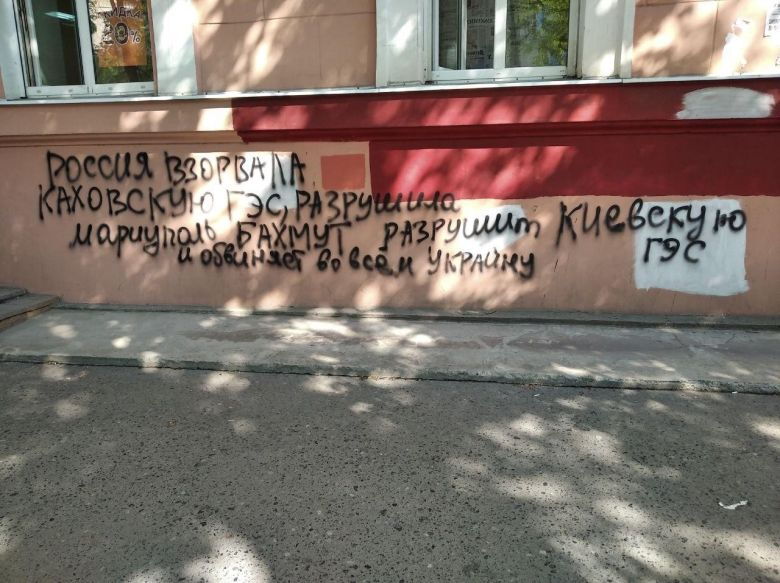 СКИДКА
20%
РОССИЯ ВЗОРВАЛА
КАХОВСКУЮ ГЭС, РАЗРУШИЛА
МАРИУПОЛЬ БАХМУТ РАЗРУШИТ КИЕВСКУЮ ГЭС
И ОБВИНЯЕТ ВО ВСЁМ УКРАИНУ